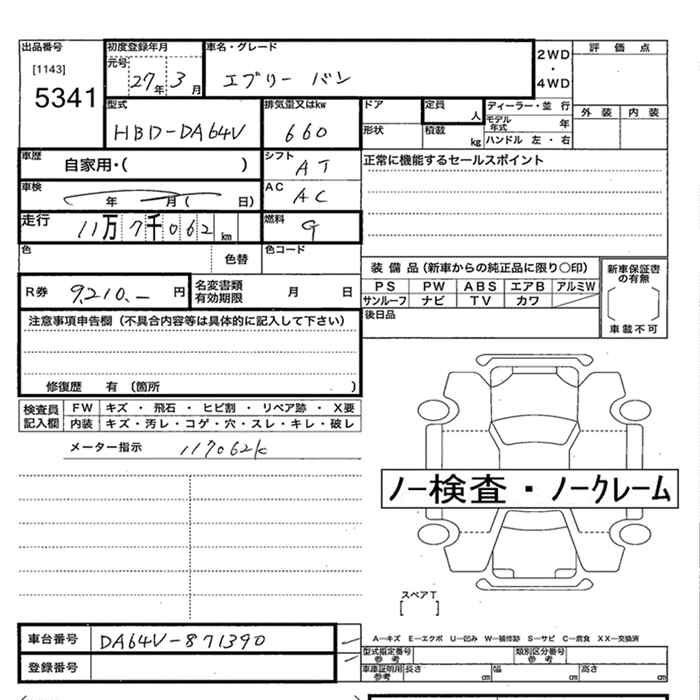 出品番号 初度登録年月 車名・グレード 2WD 評価点
[1143] 元号 ・
5341 27年 3月 エブリー バン 4WD
型式 排気量又はkw ドア 定員 人 ディーラー・並 行 外装 内装
HBD-DA64V 660 形状 積載 kg モデル年式 年
ハンドル 左・右
車歴 自家用・( ) シフト AT 正常に機能するセールスポイント
車検 年 月( 日) AC AC
走行 11万7千062km 燃料 G
色 色替 色コード
装備品(新車からの純正品に限り○印) 新車保証書の有無
R券 9,210.- 円 名変書類有効期限 月 日 PS PW ABS エアB アルミW
サンルーフ ナビ TV カワ
注意事項申告欄(不具合内容等は具体的に記入して下さい) 後日品 車載不可
修復歴 有 (箇所 )
検査員 FW キズ ・ 飛石 ・ ヒビ割 ・ リペア跡 ・ X要
記入欄 内装 キズ・汚レ・コゲ・穴・スレ・キレ・破レ
メーター指示 117062k
ノー検査・ノークレーム
スペアT
[ ]
車台番号 DA64V-871390 A―キズ E―エクボ U―凹み W―補修跡 S―サビ C―腐食 XX―交換済
登録番号 型式指定番号参考 類別区分番号参考
車庫証明用参考 長さ cm 幅 cm 高さ cm